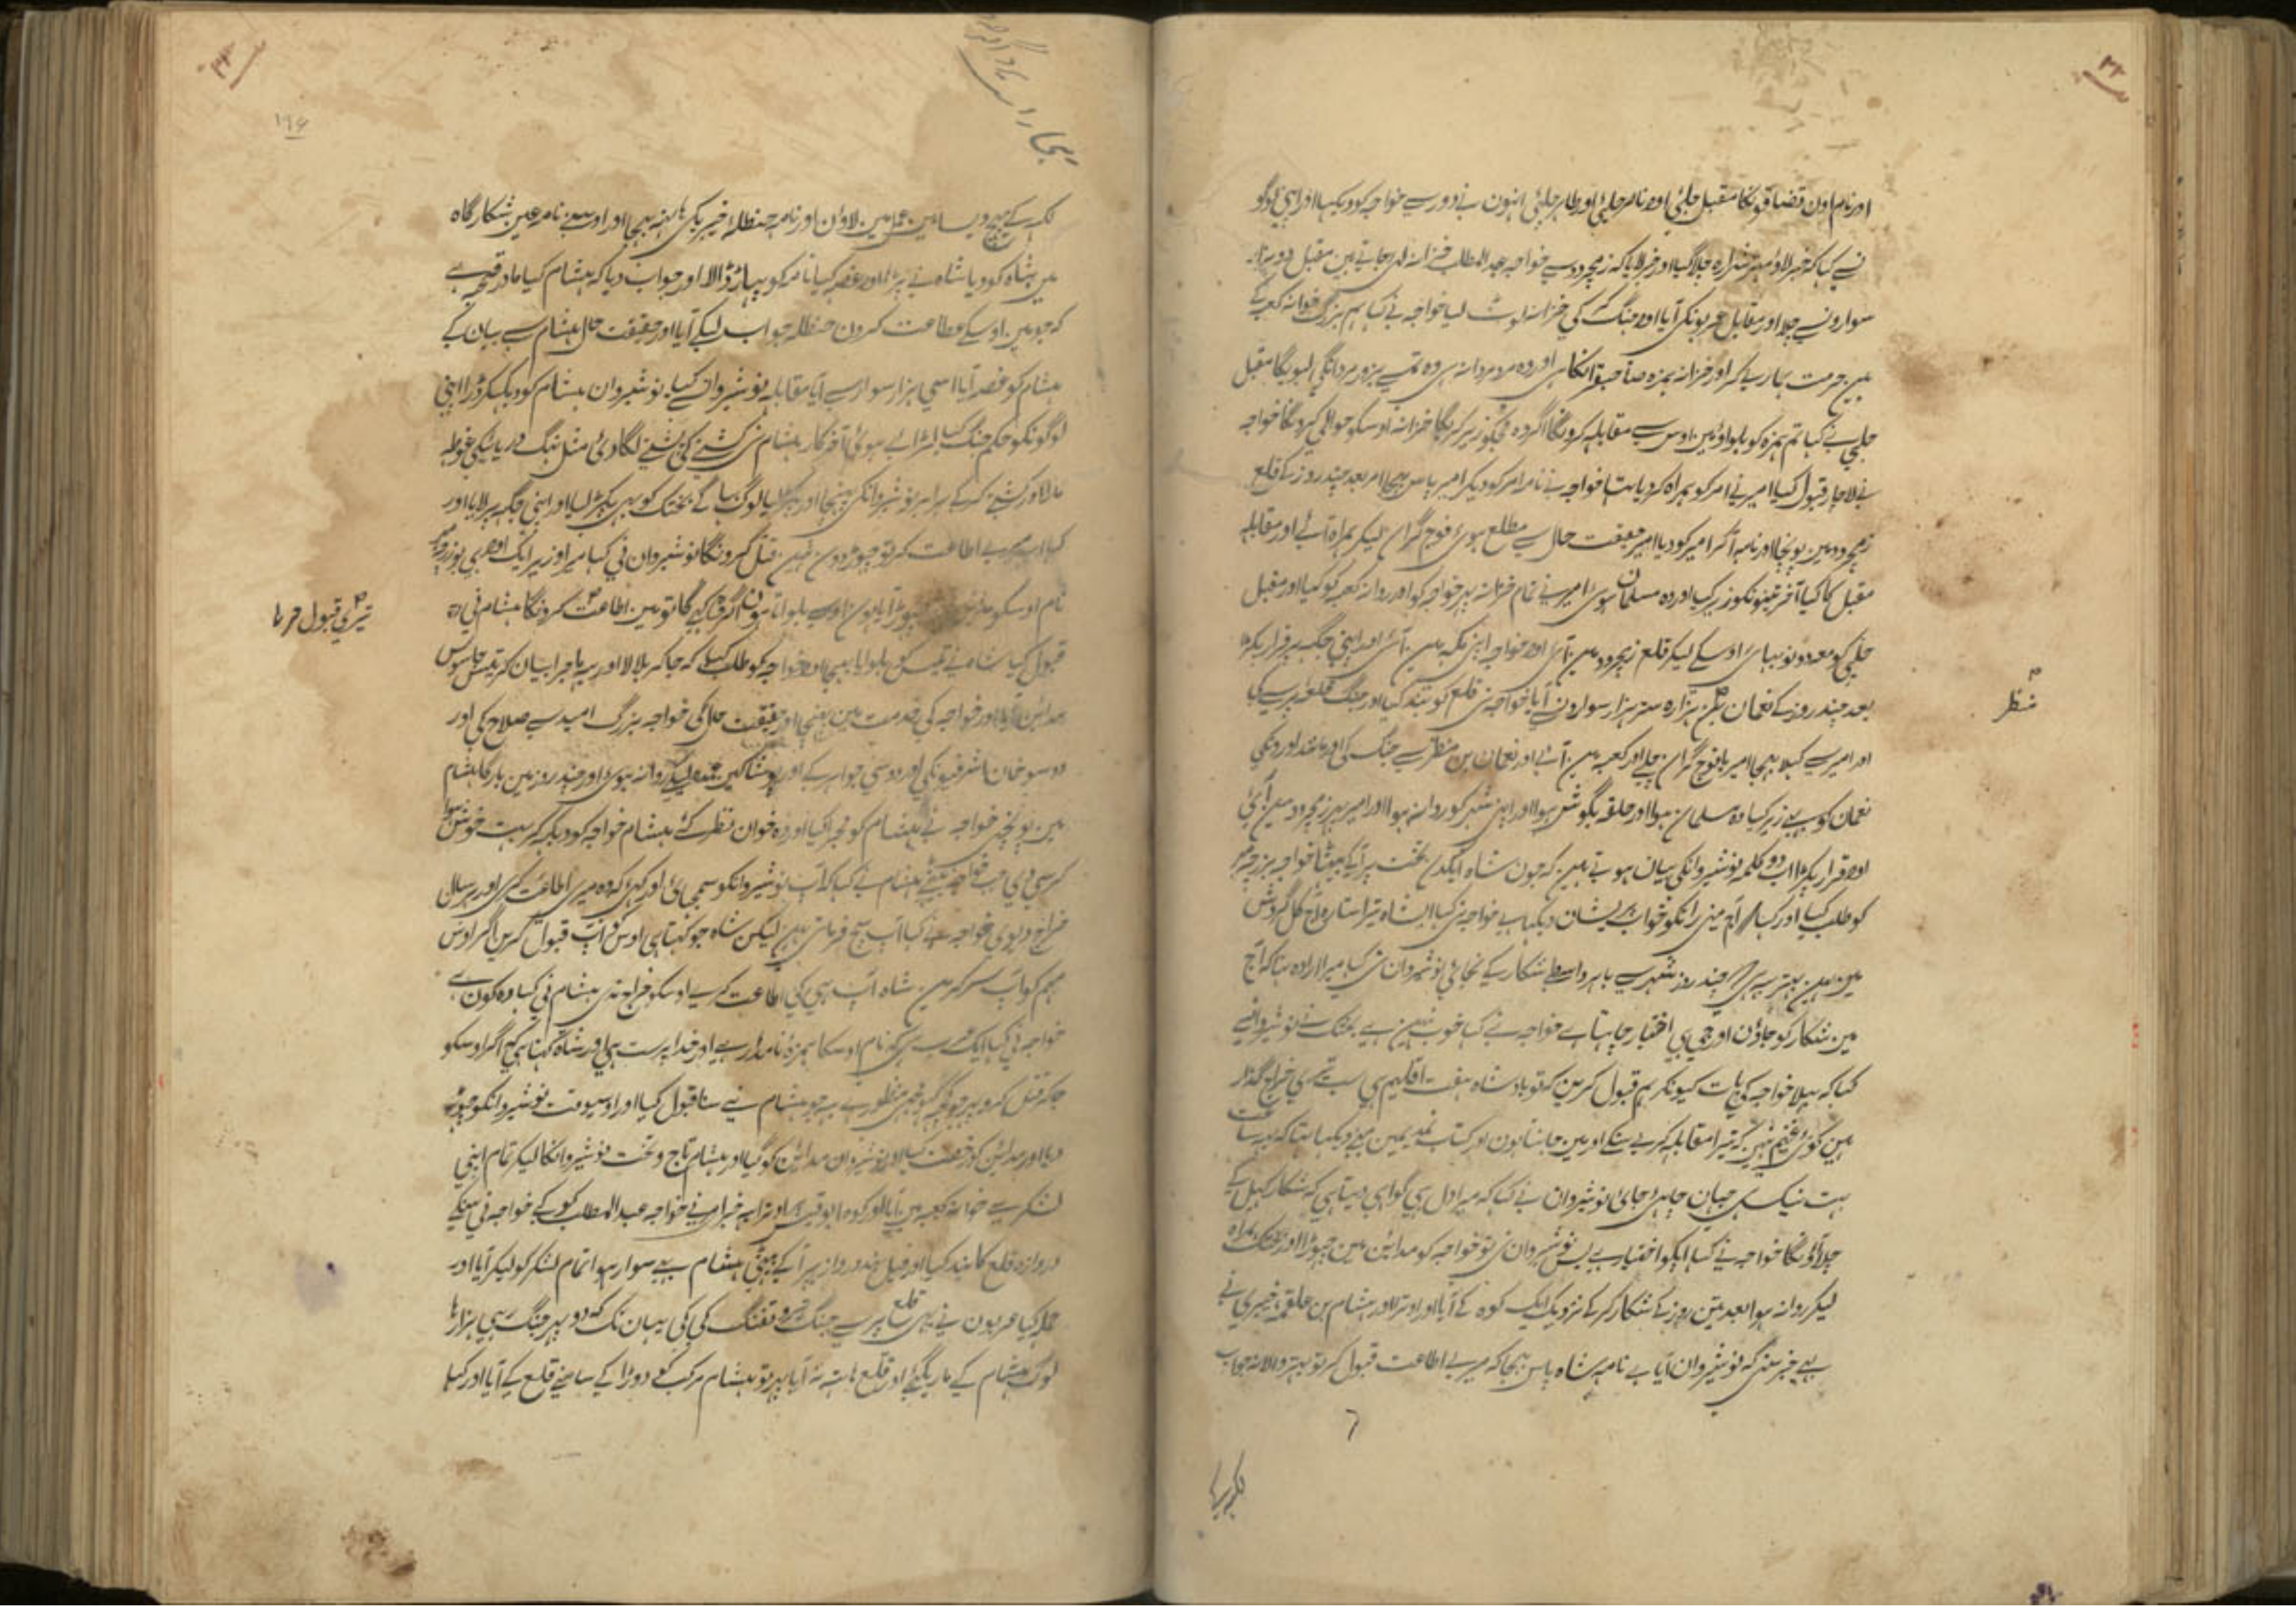 اور نام اون قضاقونکا مقبل حلبی اور ناصر حلبی اور طاہر حلبی انہون نے دور سے خواجہ کو دیکہا اور اپنی لوگو
نسے کہا کہ خبر لاؤ چلا گیا اور خبر لایا کہ زیجرود سے خواجہ عبد المطلب خزانہ لیے جاتے ہین مقبل دو ہزار
سوارونسے چلا اور مقابل آیا اور جنگ کی خزانہ لوٹ لیا خواجہ نے کہا ہم بزرگ خوانہ کعبہ کے
ہین حرمت ہمارے کر اور خزانہ ہمزہ صاحبقرانکا ہی اور وہ مرد مردانہ ہی وہ تمسے بزور مردانگی لیویگا مقبل
حلبی نے کہا تم ہمزہ کو بلواؤ مین اوس سے مقابلہ کرونگا اگر وہ مجکو زیر کریگا خزانہ اوسکو حوالی کرونگا خواجہ
نے لاچار قبول کیا امیر نے امر کو ہمراہ کر دیا تہا خواجہ نے نامہ امر کو دیکر امیر پاس بہیجا امر بعد چند روز کے قلع
زیجرود مین پونہچا اور نامہ آکر امیر کو دیا امیر حقیقت حال سے مطلع ہوئے فوج گران لیکر ہمراہ آئے اور مقابلہ
مقبل کا کیا آخر تینونکو زیر کیا اور وہ مسلمان ہوئے امیر نے تمام خزانہ پہر خواجہ کو اور روانہ کعبہ کو کیا اور مقبل
حلبی کو معہ دونو بہائی اوسکے لیکر قلع زیجرود مین آئے اور خواجہ اپنی مکہ مین آئے اور اپنی جگہ پر قرار پکڑا
بعد چند روز کے نعمان بن منظر ہزار سوارون سے آیا خواجہ نے قلع کو بند کیا اور جنگ قلع پر سے کی
اور امیر سے کہلا بہیجا امیر با فوج گران چلے اور کعبہ مین آئے اور نعمان بن منظر سے جنگ کی اور مانند اورونکی
نعمان کو بہی زیر کیا وہ مسلمان ہوا اور حلقہ بگوش ہوا اور اپنی شہر کو روانہ ہوا اور امیر پہر زیجرود مین آئے
اور قرار پکڑا اب دو کلمہ نوشیروانکی بیان ہوتے ہین کہ جون شاہ ایکدن تخت پر آیا بیٹہا خواجہ بزرچمہر
کو طلب کیا اور کہا آج مینی راتکو خواب پریشان دیکہا ہے خواجہ نے کہا ای شاہ تیرا ستارہ آج کل گردش
مین ہین بہتر یہ ہی چند روز شہر سے باہر واسطے شکار کے نجائی نوشیروان نے کہا میرا ارادہ تہا کہ آج
مین شکار کو جاؤن اور جی بی اختیار چاہتا ہے خواجہ نے کہا خوب نہین ہے بختک نے نوشیروانسے
کہا کہ بہلا خواجہ کی بات کیونکر ہم قبول کرین کہ تو بادشاہ ہفت اقلیم ہی سب تیری خراج گذار
ہین کوئی غنیم نہین کہ تیرا مقابلہ کر سکے اور مین جانتا ہون اور کتاب مین مینے دیکہا تہا کہ یہ ساعت
بہت نیک ہی جہان چاہی جای نوشیروان نے کہا کہ میرا دل بہی گواہی دیتا ہی کہ شکار کہیل کے
چلا آؤنگا خواجہ نے کہا آپکو اختیار ہے پس نوشیروان نے خواجہ کو مداین مین چہوڑا اور بختک ہمراہ
لیکر روانہ ہوا بعد تین روز کے شکار کر کے نزدیک ایک کوہ کے آیا اور اوترا اور ہشام بن علقمہ خیبری نے
یہ خبر سنی کہ نوشیروان آیا ہے نامہ شاہ پاس بہیجا کہ میرے اطاعت قبول کر تو بہتر والا نہ جواب
منظر
لاون اور نامہ حنظلہ خیبریکی ہاتہہ بہیجا اور اوسنے نامہ عین شکار گاہ
مین شاہ کو دیا شاہ نے پڑہا اور غصہ کیا نامہ کو پہاڑ ڈالا اور جواب دیا کہ ہشام کیا مادر قحبہ ہے
کہ جو مین اوسکے اطاعت کرون حنظلہ جواب لیکے آیا اور حقیقت حال ہشام سے بیان کے
ہشام کو غصہ آیا اسی ہزار سوار سے آیا مقابلہ نوشیروانکے کیا نوشیروان ہشام کو دیکہکر ڈرا اپنی
لوگونکو حکم جنگ کیا لڑائے ہوئی آخر کار ہشام نے لگا دی مثل نہنگ دریائیکی غوطہ
مارا اور برابر نوشیروانکی پہنچا اور پکڑ لیا لوگ بہاگے بختک کو بہی پکڑ لیا اور اپنی جگہ پر لایا اور
کہا اب میرے اطاعت کر تو چہوڑ دون نہین قتل کرونگا نوشیروان نے کہا میرا وزیر ایک اور ہی بوزرچمہر
نام اوسکو چہوڑ آیا ہون اوسے بلواتا ہون اگر کہے گا تو مین اطاعت کرونگا ہشام نے
قبول کیا شاہ نے بلوا بہیجا اور خواجہ کو طلب کیا کہ جا کر بلا لا اور یہ ماجرا بیان کر جاسوس
مداین آیا اور خواجہ کی خدمت مین پہنچا اور حقیقت حال کی خواجہ بزرگ امید سے صلاح کی اور
دو سو خوان اشرفیونکی اور دو سی جواہر کے اور پوشاکین عمدہ لیکر روانہ ہوی اور چند روز مین بارگاہ ہشام
مین پونہچی خواجہ نے ہشام کو مجرا کیا اور وہ خوان نظر کئے ہشام خواجہ کو دیکہہ کر بہت خوش ہوا
کرسی دی جب خواجہ بیٹہے ہشام نے کہا کہ آپ نوشیروانکو سمجہائی اور کہی کہ وہ میری اطاعت کری اور ہر سال
خراج دیوی خواجہ نے کہا آپ سچ فرماتی ہین لیکن شاہ جو کہتا ہی اوسکو آپ قبول کرین اگر اوس
مہم کو آپ سر کرین شاہ آپ ہی کی اطاعت کرے اوسکو خراج دی ہشام نے کہا وہ کون ہے
خواجہ نے کہا ایک عرب ہی کہ نام اوسکا ہمزہ نامدار ہے اور خدا پرست ہی اور شاہ کہتا ہی کہ اگر اوسکو
جا کر قتل کرو پہر جو کچہہ کہو مجہی منظور ہے یہ جو ہشام نے سنا قبول کیا اور اوسیوقت نوشیروانکو چہوڑ
دیا اور مداین کو رخصت کیا اور نوشیروان مداین کو گیا اور ہشام تاج و تخت نوشیروانکا لیکر تمام اپنی
لشکر سے خوانہ کعبہ مین آیا اور کوہ ابو قبیس اوترا یہ خبر امر نے خواجہ عبد المطلب کو کہے خواجہ نے سنکے
دروازہ قلع کا بند کیا اور دروازہ پر آ کے بیٹہی ہشام بہی سوار ہوا تمام لشکر کو لیکر آیا اور
حملہ کیا عربون نے بہی قلع پر سے جنگ تیر و تفنگ کی کی یہان تک کہ دو پہر جنگ رہی ہزارہا
لوگ ہشام کے ماریگئے اور قلع ہاتہہ نہ آیا پہر تو ہشام مرکب کو دوڑا کے سامنے قلع کے آیا اور کہا
تیری قبول فرما